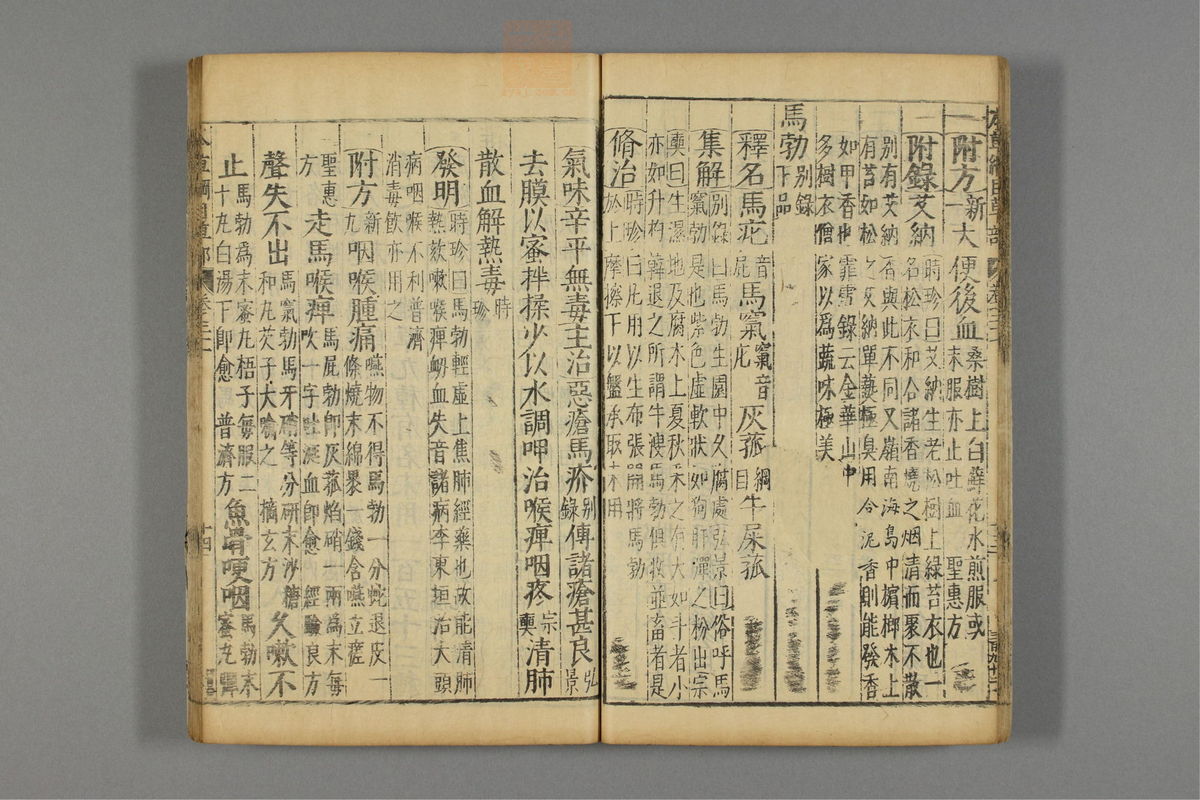 附方新一大便後血桑樹上白蘚花水煎服或末服亦止吐血 聖惠方
附錄艾納時珍曰艾納生老松樹上綠苔衣也一名松衣和合諸香燒之烟清而聚不散
別有艾納香與此不同又嶺南海島中檳榔木上有苔如松之艾納單爇極臭用合泥香則能發香
如甲香也霏雪錄云金華山中多樹衣僧家以爲蔬味極美
馬勃別錄下品
釋名馬疕音屁馬窼音庀灰菰綱目牛屎菰
集解別錄曰馬勃生園中久腐處弘景曰俗呼馬窼勃是也紫色虛軟狀如狗肝彈之粉出宗
奭曰生濕地及腐木上夏秋采之有大如斗者小亦如升杓韓退之所謂牛溲馬勃俱收並畜者是
脩治時珍曰凡用以生布張開將馬勃於上摩擦下以盤承取末用
氣味辛平無毒主治惡瘡馬疥別錄傅諸瘡甚良弘景
去膜以蜜拌揉少以水調呷治喉痺咽疼宗奭清肺
散血解熱毒時珍
發明時珍曰馬勃輕虛上焦肺經藥也故能清肺熱欬嗽喉痺衂血失音諸病李東垣治大頭
病咽喉不利普濟消毒飲亦用之
附方新九咽喉腫痛嚥物不得馬勃一分蛇退皮一條燒末綿裹一錢含嚥立瘥
聖惠方走馬喉痺馬屁勃即灰菰焰硝一兩為末每吹一字吐涎血即愈 經驗良方
聲失不出馬窼勃馬牙硝等分研末沙糖和丸芡子大噙之 摘玄方久嗽不
止馬勃爲末蜜丸梧子每服二十丸白湯下即愈 普濟方魚骨哽咽馬勃末蜜丸彈